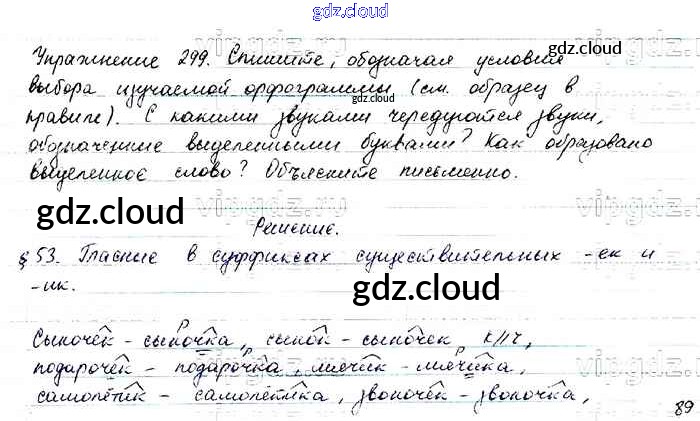 gdz.cloud
Упражнение 299. Спишите, обозначая условия
gdz.cloud
выбора изучаемой орфограммы (см. образец в
gdz.cloud
правиле). С какими звуками чередуются звуки,
обозначенные выделенными буквами? Как образовано
выделенное слово? Объясните письменно.
gdz.cloud
vipgdz.
Решение.
§ 53. Гласные в суффиксах существительных -ек и
-ик.
gdz.cloud
Сыночек - сыночка, сынок - сыночек, к//ч,
подарочек - подарочка, мячик - мячика,
самолётик - самолётика, звоночек - звоночка,
89